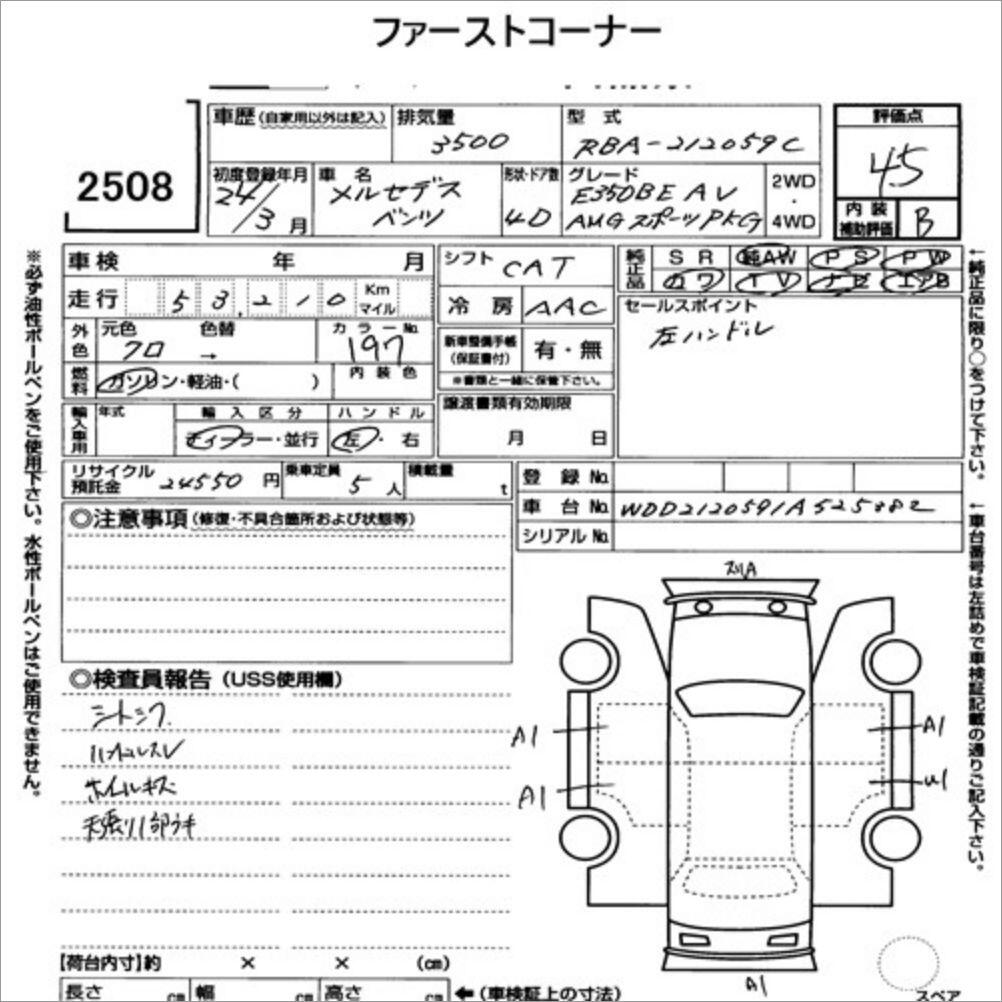 ファーストコーナー
2508
車歴 (自家用以外は記入) 排気量 3500 型式 RBA-212059C
評価点 4.5
初度登録年月 24/3月 車名 メルセデス ベンツ 形状・ドア数 4D グレード E350BE AV AMGスポーツPKG 2WD・4WD
内装補助評価 B
車検 年 月
走行 53,210 Km マイル
外色 元色 クロ 色替 → カラーNo. 197
燃料 ガソリン・軽油・( ) 内装色
輸入車用 年式 輸入区分 ディーラー・並行 ハンドル 左・右
シフト CAT
冷房 AAC
新車整備手帳 (保証書付) 有・無
※書類と一緒に保管下さい。
譲渡書類有効期限
月 日
純正品 SR 純AW PS PW
カワ TV ナビ エアB
セールスポイント
左ハンドル
リサイクル預託金 24550円 乗車定員 5人 積載量 t
登録No.
車台No. WDD2120591A525882
シリアルNo.
◎注意事項 (修復・不具合箇所および状態等)
◎検査員報告 (USS使用欄)
シートシワ
ハンドルスレ
ホイルキズ
天張り1部ウキ
スリA
A1
A1
A1
U1
A1
スペア
【荷台内寸】約 × × (cm)
長さ cm 幅 cm 高さ cm ←(車検証上の寸法)
※必ず油性ボールペンをご使用下さい。水性ボールペンはご使用できません。
←純正品に限り○をつけて下さい。
←車台番号は左詰めで車検証記載の通りご記入下さい。